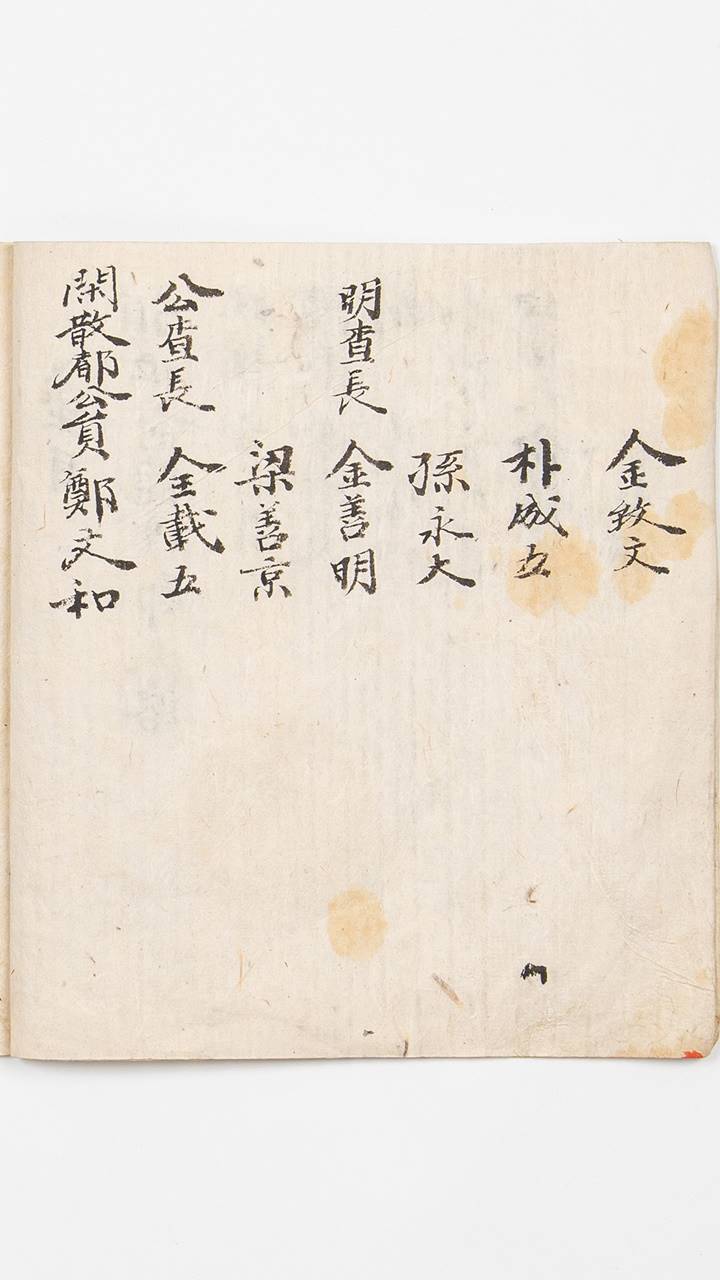 金致文
朴成五
孫永大
明查長 金善明
梁善京
公查長 全載五
閑散都公員 鄭文和